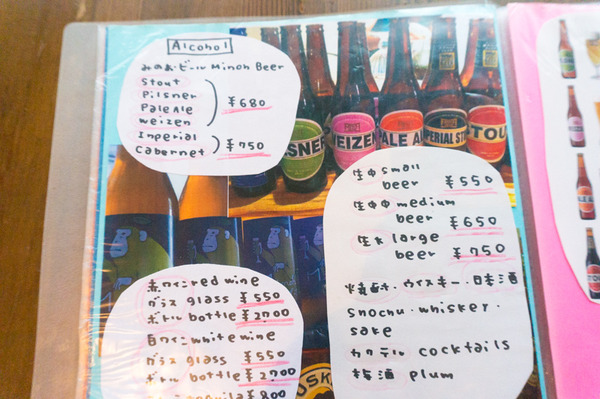 Alcohol
みのおビール Minoh Beer
Stout
Pilsner
Pale Ale
weizen
¥680
Imperial
Cabernet
¥750
SNER
WEIZEN
PALE A
IMPERIAL ST
STOU
生小 small
beer ¥550
生中 medium
beer ¥650
生大 large
beer ¥750
焼酎・ウイスキー・日本酒
Snochu・whisker・
sake
カクテル cocktails
梅酒 plum
赤ワイン red wine
グラス glass ¥550
ボトル bottle ¥2700
白ワイン white wine
グラス glass ¥550
ボトル bottle ¥2700
tequila ¥800